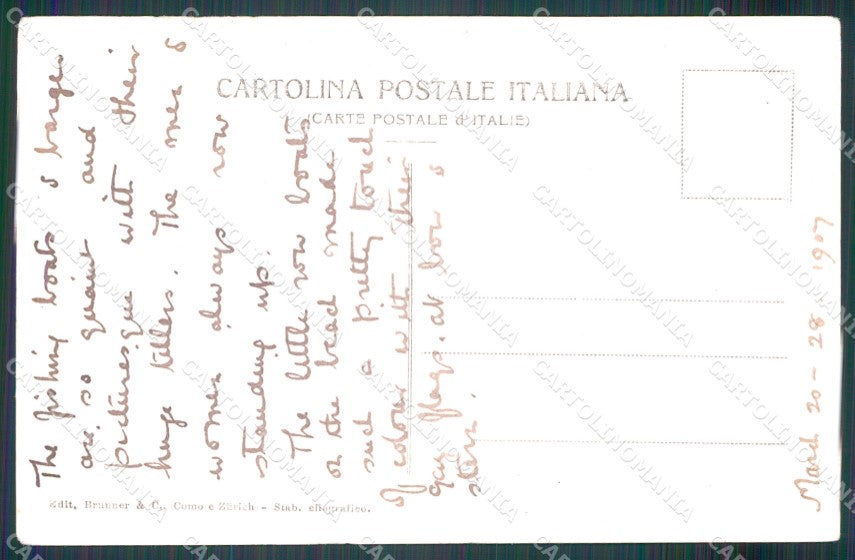 CARTOLINA POSTALE ITALIANA
(CARTE POSTALE d'ITALIE)
The fishing boats & barges
are so quaint and
picturesque with their
huge tillers. The men &
women always row
standing up.
The little row boats
on the lead made
such a pretty touch
of colour with their
gay flags at bow &
stern.
March 20 - 28 1907
Edit, Brunner & C., Como e Zürich - Stab. eliografico.
CARTOLINOMANIA